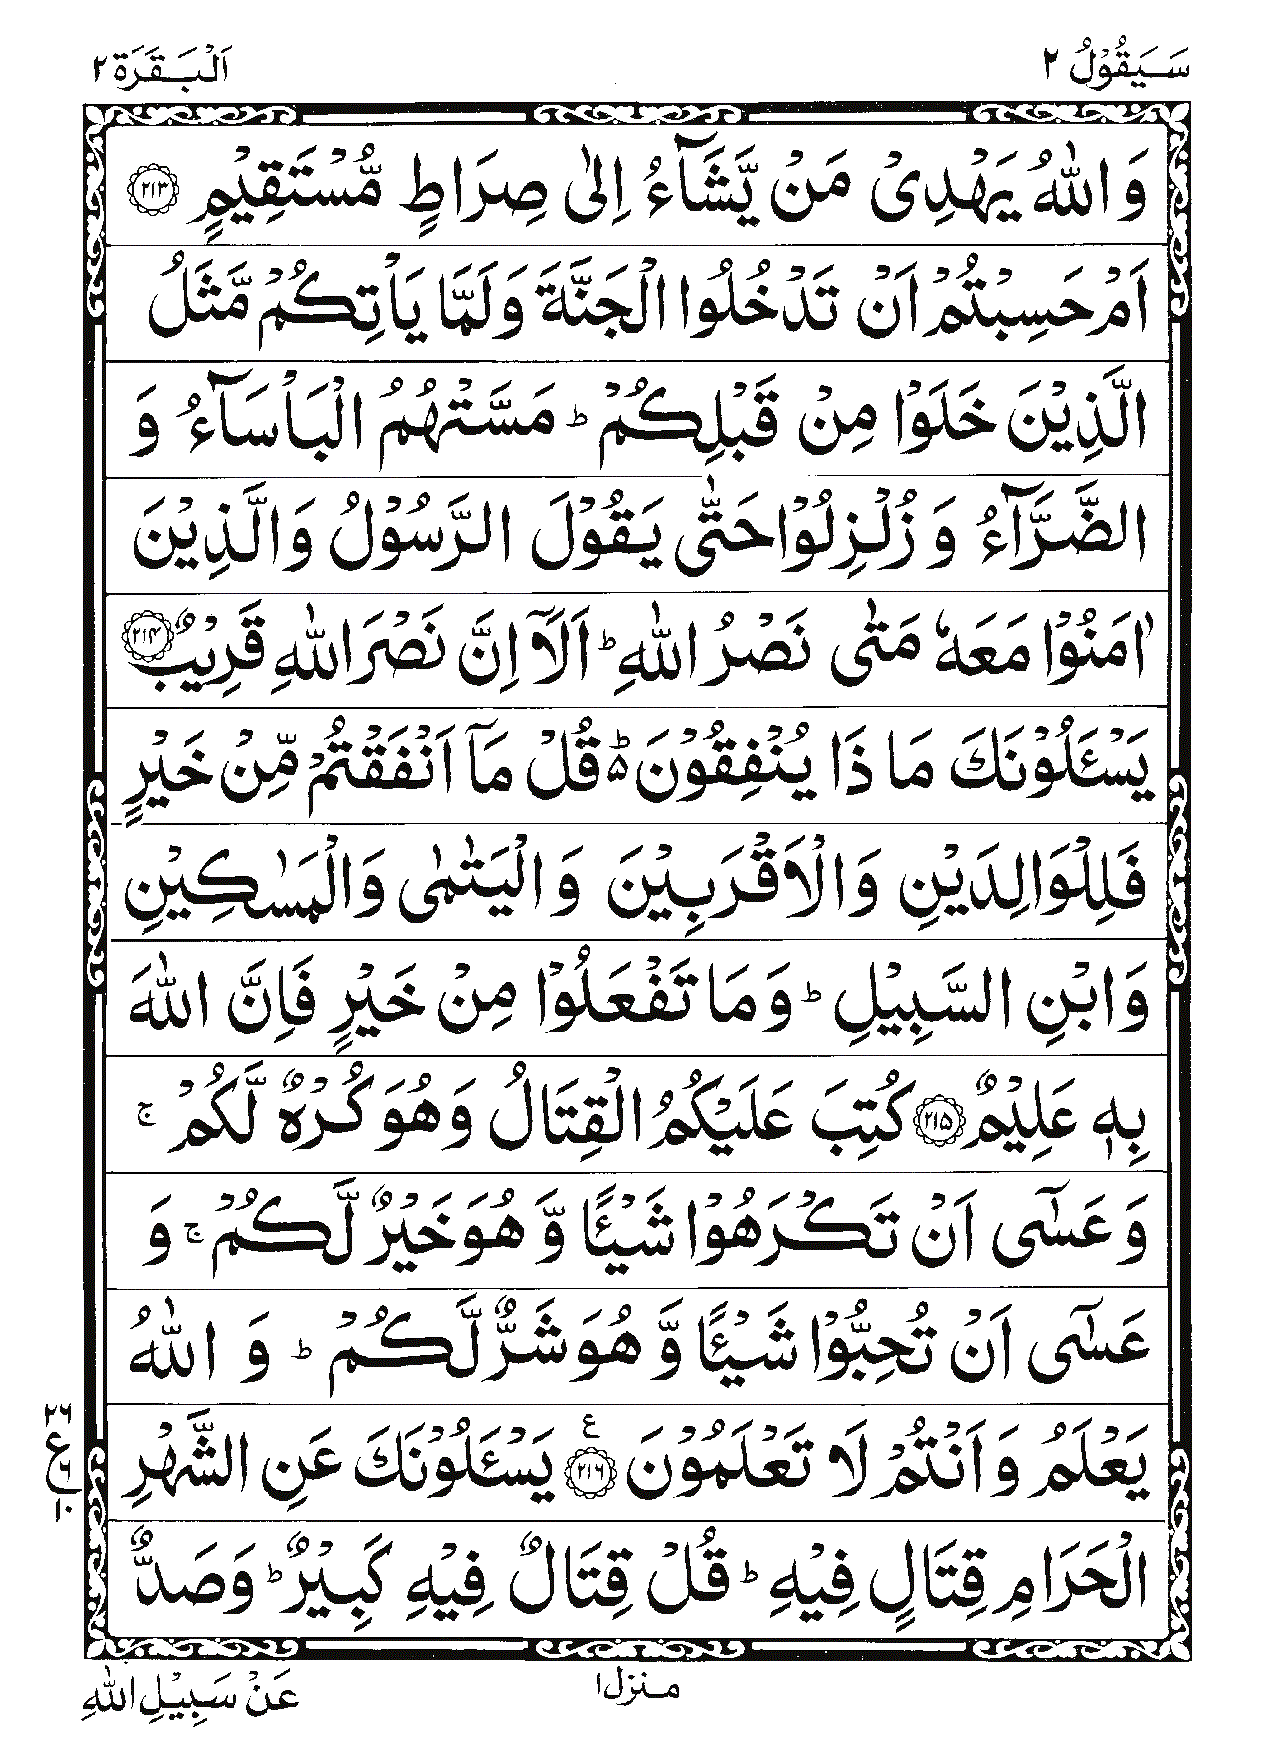 سَيَقُوْلُ ٢
اَلْبَقَرَة ٢
وَ اللّٰهُ يَهْدِىْ مَنْ يَّشَآءُ اِلٰى صِرَاطٍ مُّسْتَقِيْمٍ ﴿٢١٣﴾
اَمْ حَسِبْتُمْ اَنْ تَدْخُلُوا الْجَنَّةَ وَلَمَّا يَاْتِكُمْ مَّثَلُ
الَّذِيْنَ خَلَوْا مِنْ قَبْلِكُمْ ؕ مَسَّتْهُمُ الْبَاْسَآءُ وَ
الضَّرَّآءُ وَ زُلْزِلُوْا حَتّٰى يَقُوْلَ الرَّسُوْلُ وَالَّذِيْنَ
اٰمَنُوْا مَعَهٗ مَتٰى نَصْرُ اللّٰهِ ؕ اَلَآ اِنَّ نَصْرَ اللّٰهِ قَرِيْبٌ ﴿٢١٤﴾
يَسْـَٔلُوْنَكَ مَا ذَا يُنْفِقُوْنَ ؕ۵ قُلْ مَآ اَنْفَقْتُمْ مِّنْ خَيْرٍ
فَلِلْوَالِدَيْنِ وَالْاَقْرَبِيْنَ وَالْيَتٰمٰى وَالْمَسٰكِيْنِ
وَابْنِ السَّبِيْلِ ؕ وَ مَا تَفْعَلُوْا مِنْ خَيْرٍ فَاِنَّ اللّٰهَ
بِهٖ عَلِيْمٌ ﴿٢١٥﴾ كُتِبَ عَلَيْكُمُ الْقِتَالُ وَهُوَ كُرْهٌ لَّكُمْ ۚ
وَ عَسٰٓى اَنْ تَكْرَهُوْا شَيْـًٔا وَّ هُوَ خَيْرٌ لَّكُمْ ۚ وَ
عَسٰٓى اَنْ تُحِبُّوْا شَيْـًٔا وَّ هُوَ شَرٌّ لَّكُمْ ؕ وَ اللّٰهُ
يَعْلَمُ وَ اَنْتُمْ لَا تَعْلَمُوْنَ ﴿٢١٦﴾ ع يَسْـَٔلُوْنَكَ عَنِ الشَّهْرِ
٢٦
ع
٦
١٠
الْحَرَامِ قِتَالٍ فِيْهِ ؕ قُلْ قِتَالٌ فِيْهِ كَبِيْرٌ ؕ وَصَدٌّ
منزل ١
عَنْ سَبِيْلِ اللّٰهِ